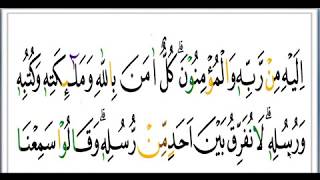 اِلَيْهِ مِنْ رَّبِّهٖ وَالْمُؤْمِنُوْنَ ۗ كُلٌّ اٰمَنَ بِاللّٰهِ وَمَلٰٓئِكَتِهٖ وَكُتُبِهٖ
وَرُسُلِهٖ ۗ لَا نُفَرِّقُ بَيْنَ اَحَدٍ مِّنْ رُّسُلِهٖ ۗ وَقَالُوْا سَمِعْنَا